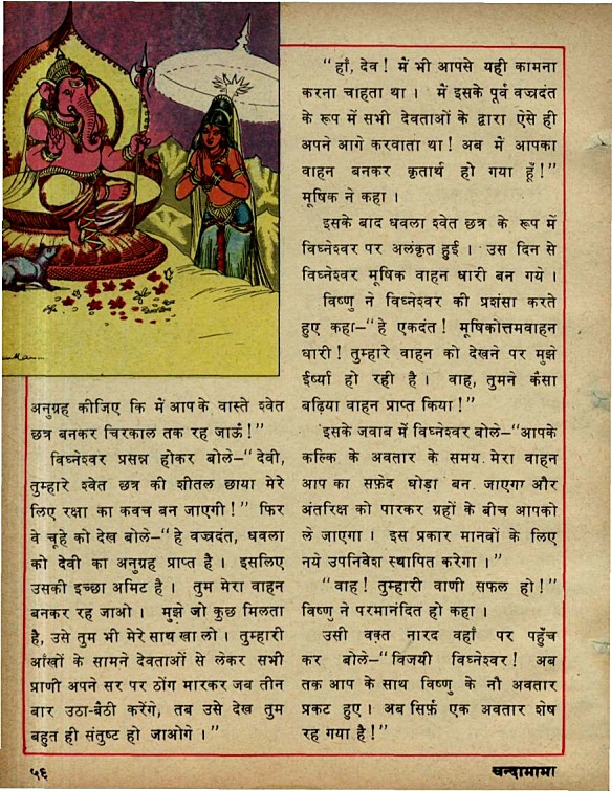 अनुग्रह कीजिए कि में आपके वास्ते श्वेत
छत्र बनकर चिरकाल तक रह जाऊं!”
विघ्नेश्वर प्रसन्न होकर बोले–“देवी,
तुम्हारे श्वेत छत्र की शीतल छाया मेरे
लिए रक्षा का कवच बन जाएगी!” फिर
वे चूहे को देख बोले–“हे वज्रदंत, धवला
को देवी का अनुग्रह प्राप्त है। इसलिए
उसकी इच्छा अमिट है। तुम मेरा वाहन
बनकर रह जाओ। मुझे जो कुछ मिलता
है, उसे तुम भी मेरे साथ खा लो। तुम्हारी
आँखों के सामने देवताओं से लेकर सभी
प्राणी अपने सर पर ठोंग मारकर जब तीन
बार उठा-बैठी करेंगे, तब उसे देख तुम
बहुत ही संतुष्ट हो जाओगे।”
“हाँ, देव! में भी आपसे यही कामना
करना चाहता था। में इसके पूर्व वज्रदंत
के रूप में सभी देवताओं के द्वारा ऐसे ही
अपने आगे करवाता था! अब में आपका
वाहन बनकर कृतार्थ हो गया हूँ!”
मूषिक ने कहा।
इसके बाद धवला श्वेत छत्र के रूप में
विघ्नेश्वर पर अलंकृत हुई। उस दिन से
विघ्नेश्वर मूषिक वाहन धारी बन गये।
विष्णु ने विघ्नेश्वर की प्रशंसा करते
हुए कहा–“हे एकदंत! मूषिकोत्तमवाहन
धारी! तुम्हारे वाहन को देखने पर मुझे
ईर्ष्या हो रही है। वाह, तुमने कैसा
बढ़िया वाहन प्राप्त किया!”
इसके जवाब में विघ्नेश्वर बोले–“आपके
कल्कि के अवतार के समय मेरा वाहन
आप का सफ़ेद घोड़ा बन जाएगा और
अंतरिक्ष को पारकर ग्रहों के बीच आपको
ले जाएगा। इस प्रकार मानवों के लिए
नये उपनिवेश स्थापित करेगा।”
“वाह! तुम्हारी वाणी सफल हो!”
विष्णु ने परमानंदित हो कहा।
उसी वक़्त नारद वहाँ पर पहुँच
कर बोले–“विजयी विघ्नेश्वर! अब
तक आप के साथ विष्णु के नौ अवतार
प्रकट हुए। अब सिर्फ़ एक अवतार शेष
रह गया है!”
५६
चन्दामामा